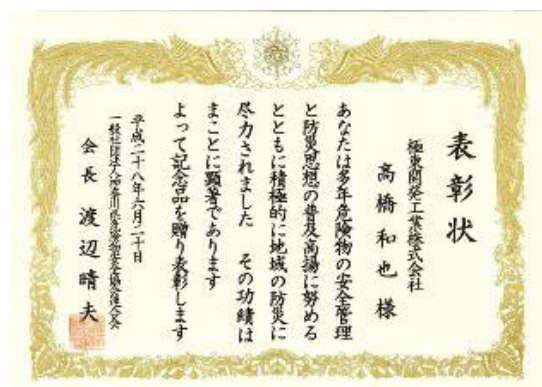 表彰状
極東開発工業株式会社
高橋和也様
あなたは多年危険物の安全管理
と防災思想の普及高揚に努める
とともに積極的に地域の防災に
尽力されました その功績は
まことに顕著であります
よって記念品を贈り表彰します
平成二十八年六月二十日
一般社団法人神奈川県危険物安全協会連合会
会長 渡辺晴夫